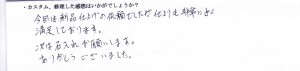 ・カスタム、修理した感想はいかがでしょうか？
今回は新品仕上げの依頼でしたが仕上りも非常に良く
満足しております。
次は名入れお願いします。
ありがとうございました。